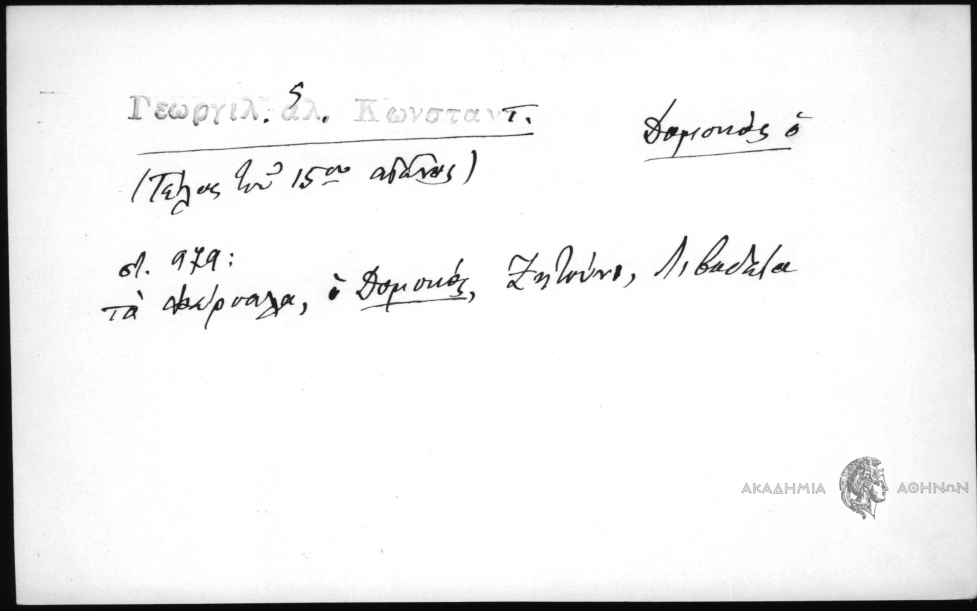 Γεωργιλ. ἁλ. Κωνσταντ.
Δομοκός ὁ
(Τέλος τοῦ 15ου αἰῶνος)
στ. 979:
τὰ Φέρσαλα, ὁ Δομοκός, Ζητούνι, Λιβαδεία
ΑΚΑΔΗΜΙΑ ΑΘΗΝΩΝ